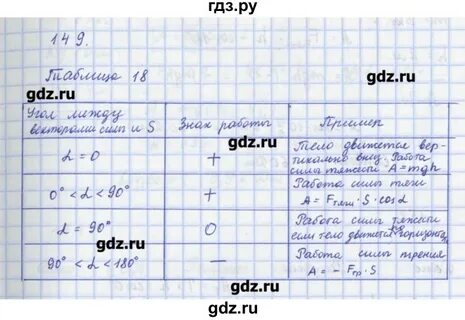 гдз.ру
149.
Таблица 18
gdz.ru gdz.ru
Угол между векторами силы и S
Знак работы
Пример
α = 0
+
Тело движется вертикально вниз. Работа силы тяжести A = mgh
0° < α < 90°
+
Работа силы тяги
A = Fтяги · S · cos α
α = 90°
0
Работа силы тяжести если тело движется горизонта
90° < α < 180°
−
Работа силы трения
A = − Fтр · S
gdz.ru gdz.ru
gdz.ru gdz.ru
gdz.ru